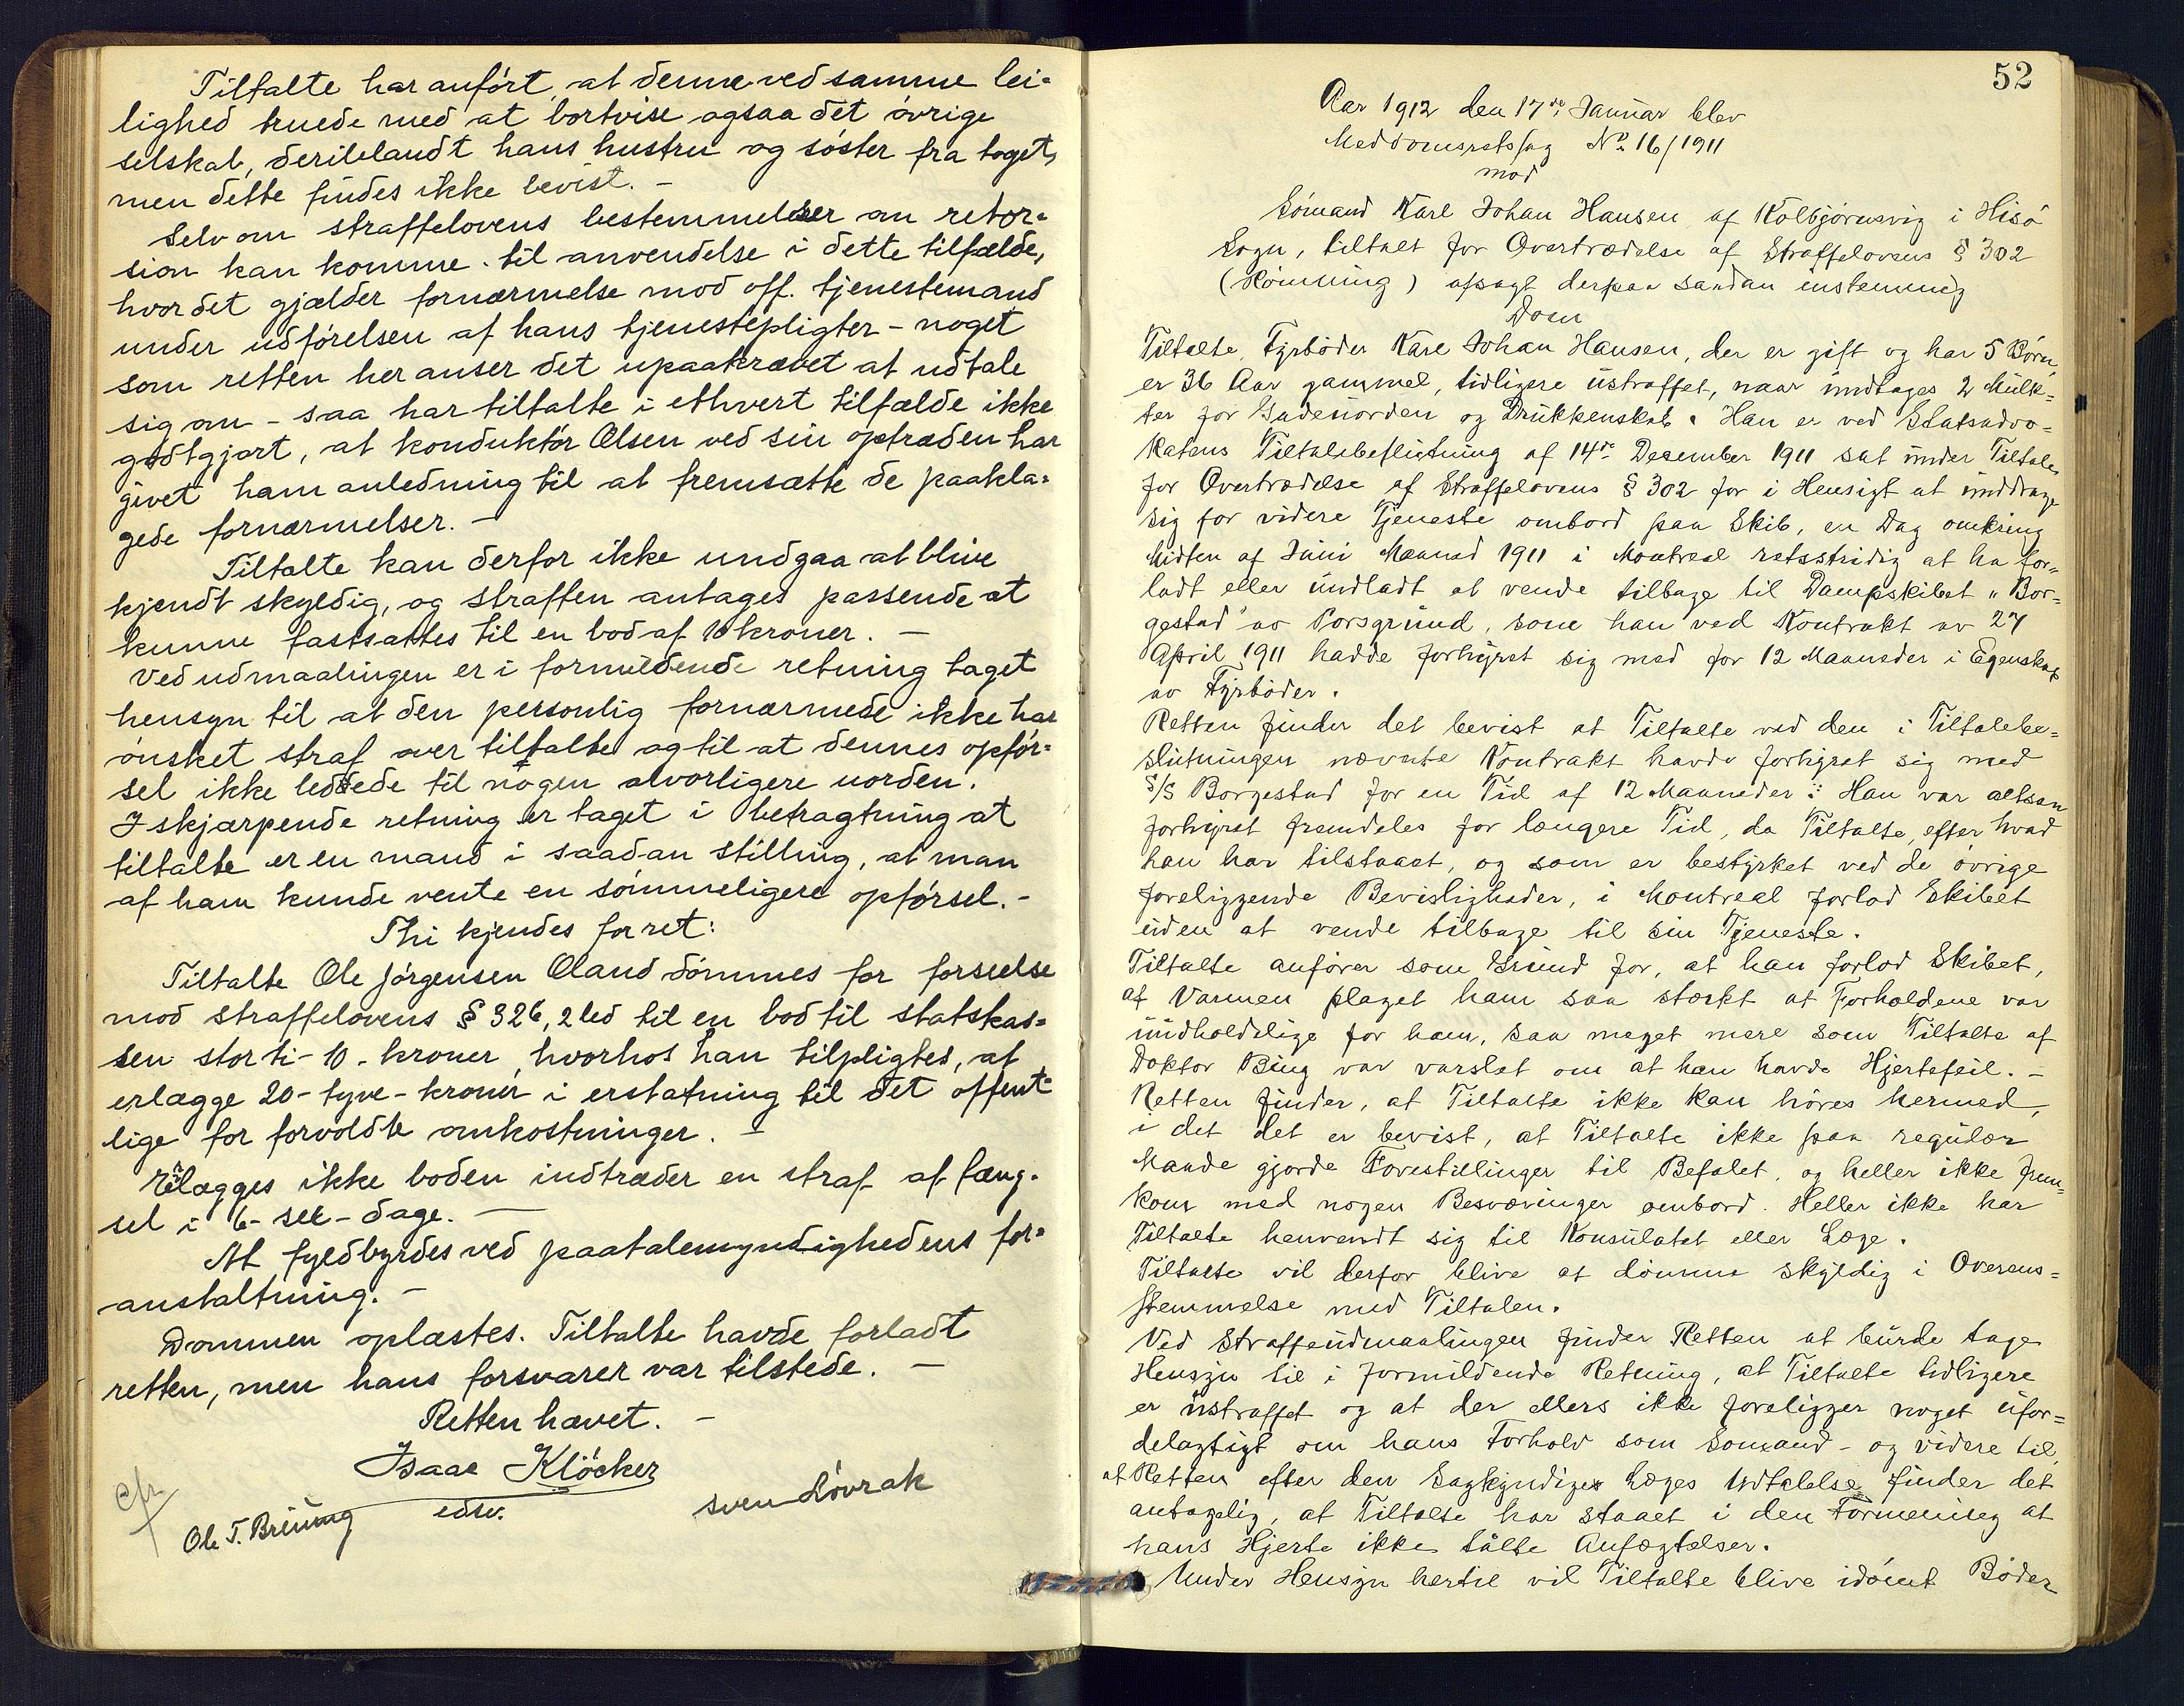 Tiltalte har anført, at denne ved samme lei-
lighed truede med at bortvise ogsaa det øvrige
selskab, deriblandt hans hustru og søster fra toget,
men dette findes ikke bevist. –
Selv om straffelovens bestemmelser om retor-
sion kan komme til anvendelse i dette tilfælde,
hvor det gjælder fornærmelse mod off. tjenestemand
under udførelsen af hans tjenestepligter – noget
som retten her anser det upaakrævet at udtale
sig om – saa har tiltalte i ethvert tilfælde ikke
godtgjort, at konduktør Olsen ved sin optræden har
givet ham anledning til at fremsætte de paakla-
gede fornærmelser. –
Tiltalte kan derfor ikke undgaa at blive
kjendt skyldig, og straffen antages passende at
kunne fastsættes til en bod af 10 kroner. –
Ved udmaalingen er i formildende retning taget
hensyn til at den personlig fornærmede ikke har
ønsket straf over tiltalte og til at dennes opfør-
sel ikke ledede til nogen alvorligere uorden.
I skjærpende retning er taget i betragtning at
tiltalte er en mand i saadan stilling, at man
af ham kunde vente en sømmeligere opførsel. –
Thi kjendes for ret:
Tiltalte Ole Jørgensen Øland dømmes for forseelse
mod straffelovens § 326, 2 led til en bod til statskas-
sen stor ti – 10 – kroner, hvorhos han tilpligtes, at
erlægge 20 – tyve – kroner i erstatning til det offent-
lige for forvoldte omkostninger. –
Erlægges ikke boden indtræder en straf af fæng-
sel i 6 – sex – dage. –
At fyldbyrdes ved paatalemyndighedens for-
anstaltning. –
Dommen oplæstes. Tiltalte havde forladt
retten, men hans forsvarer var tilstede. –
Retten hævet. –
Isaac Klöcker
edsv.
Sven Løvrak
Ole T. Breiung
cfr
52
Aar 1912 den 17de Januar blev
Meddomsretssag No. 16/1911
mod
Sømand Karl Johan Hansen af Kolbjørnsvig i Hisø
Sogn, tiltalt for Overtrædelse af Straffelovens § 302
(Rømning) afsagt derpaa saadan enstemmig
Dom
Tiltalte, Fyrbøder Karl Johan Hansen, der er gift og har 5 Børn,
er 36 Aar gammel, tidligere ustraffet, naar undtages 2 Mulk-
ter for Gadeuorden og Drukkenskab. Han er ved Statsadvo-
katens Tiltalebeslutning af 14de Desember 1911 sat under Tiltale
for Overtrædelse af Straffelovens § 302 for i Hensigt at unddrage
sig for videre Tjeneste ombord paa Skib, en Dag omkring
Midten af Juni Maaned 1911 i Montreal retsstridig at ha for-
ladt eller undladt at vende tilbage til Dampskibet "Bor-
gestad" av Porsgrund, som han ved Kontrakt av 27
April 1911 hadde forhyret sig med for 12 Maaneder i Egenskab
av Fyrbøder.
Retten finder det bevist at Tiltalte ved den i Tiltalebe-
slutningen nævnte Kontrakt havde forhyret sig med
S/S Borgestad for en Tid af 12 Maaneder. Han var altsaa
forhyret fremdeles for længere Tid, da Tiltalte, efter hvad
han har tilstaaet, og som er bestyrket ved de øvrige
foreliggende Bevisligheder, i Montreal forlod Skibet
uden at vende tilbage til sin Tjeneste.
Tiltalte anfører som Grund for, at han forlod Skibet,
at Varmen plaget ham saa stærkt at Forholdene var
uudholdelige for ham, saa meget mere som Tiltalte af
Doktor Bing var varslet om at han havde Hjertefeil. –
Retten finder, at Tiltalte ikke kan høres hermed,
i det det er bevist, at Tiltalte ikke paa regulær
Maade gjorde Forestillinger til Befalet, og heller ikke frem-
kom med nogen Besværinger ombord. Heller ikke har
Tiltalte henvendt sig til Konsulatet eller Læge.
Tiltalte vil derfor blive at dømme skyldig i Overens-
stemmelse med Tiltalen.
Ved Straffeudmaalingen finder Retten at burde tage
Hensyn til i formildende Retning, at Tiltalte tidligere
er ustraffet og at der ellers ikke foreligger noget ufor-
delagtigt om hans Forhold som Sømand – og videre til,
at Retten efter den sagkyndige Læges Udtalelse finder det
antagelig, at Tiltalte har staaet i den Formening at
hans Hjerte ikke tålte Anfægtelser.
Under Hensyn hertil vil Tiltalte blive idømt Bøder